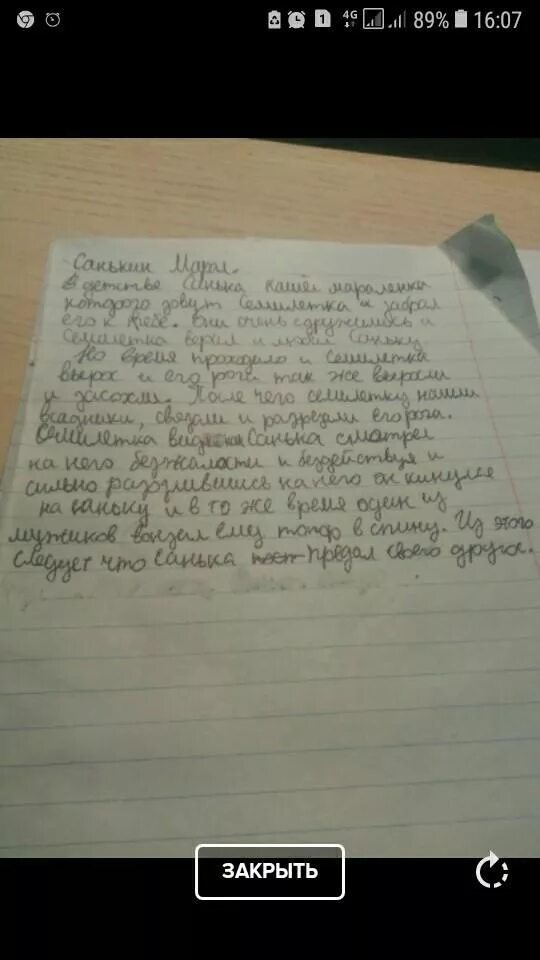 1
4G
89%
16:07
Санькин Марал.
В детстве Санька нашел мараленка
которого зовут Семилетка и забрал
его к себе. Они очень сдружились и
Семилетка верил и любил Саньку
Но время проходило и Семилетка
вырос и его роги так же выросли
и засохли. После чего семилетку нашли
всадники, связали и разрезали его рога.
Семилетка видел Санька смотрел
на него безжалости и бездействуя и
сильно разозлившись на него он кинулся
на саньку и в то же время один из
мужиков вонзил ему топор в спину. Из этого
следует что Санька предал своего друга.
ЗАКРЫТЬ